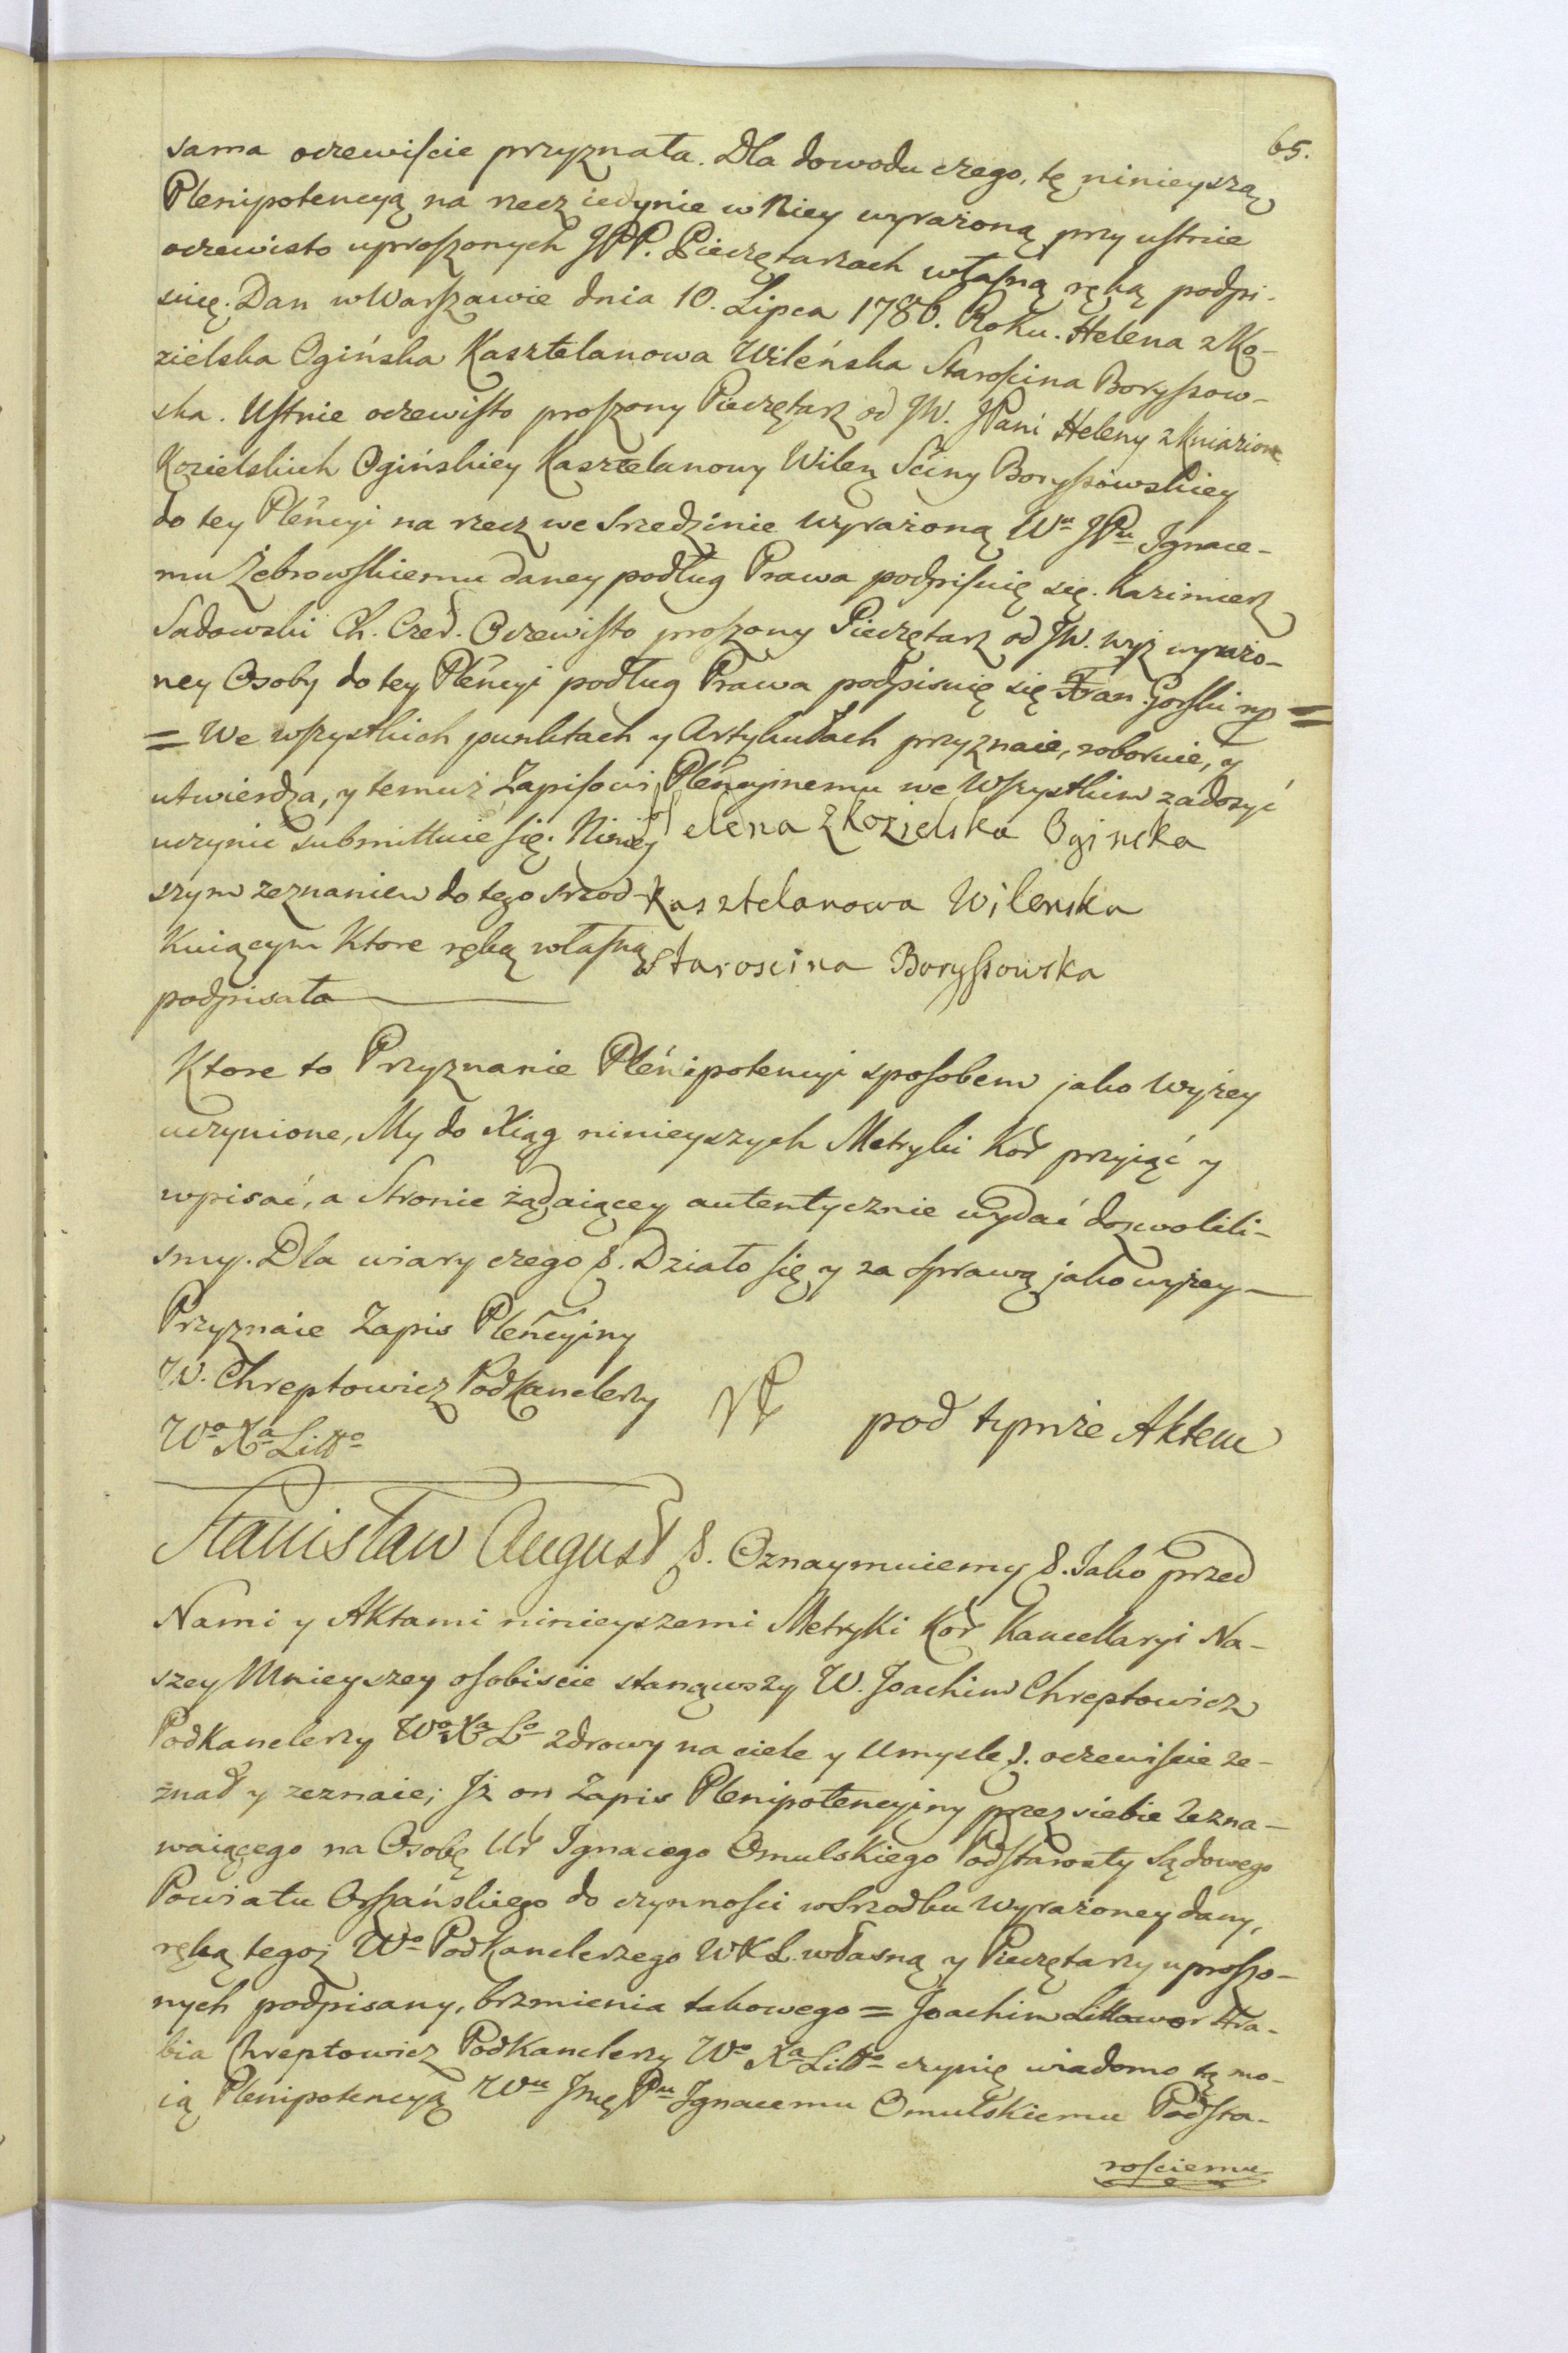 65.
sama oczewiście przyznała. Dla dowodu czego, tę ninieyszą
Plenipotencyą na rzecz iedynie w Niey wyrażoną przy ustnie
oczewisto uproszonych JPP. Pieczętarzach własną ręką podpi-
suię. Dan w Warszawie dnia 10. Lipca 1786. Roku. Helena z Ko-
zielska Ogińska Kasztelanowa Wileńska Starościna Boryssow-
ska. Ustnie oczewisto proszony Pieczętarz od JW. JPani Heleny z Kniaziow
Kozielskich Ogińskiey Kasztelanowy Wileń Sciny Boryssowskiey
do tey Pleńcyi na rzecz we Srzedzinie wyrażoną Wu JPu Ignace-
mu Żebrowskiemu daney podług Prawa podpisuię się. Kazimierz
Sadowski Ch. Czer. Oczewisto proszony Pieczętarz od JW. wyż wyrażo-
ney Osoby do tey Pleńcyi podług Prawa podpisuię się Fran. Gorski mp =
= We wszystkich punktach y Artykułach przyznaie, roboruie, y
utwierdza, y temuż Zapisowi Pleńcyjnemu we Wszystkim zadosyć
uczynić submittuie się. Niniey Helena z Kozielska Oginska
szym zeznaniem do tego srzod- Kasztelanowa Wilenska
kuiącym Ktore ręką własną Staroscina Boryssowska
podpisała
Ktore to Przyznanie Plenipotencyi sposobem jako wyżey
uczynione, My do Xiąg ninieyszych Metryki Kor przyiąć y
wpisać, a Stronie żądaiącey autentycznie wydać dozwolili-
smy. Dla wiary czego &. Działo się y za sprawą jako wyżey
Przyznaie Zapis Pleńcyjny
W. Chreptowicz Podkanclerzy
Wo Xa Litto
pod tymże Aktem
Stanisław August &. Oznaymuiemy &. Jako przed
Nami y Aktami ninieyszemi Metryki Kor Kancellaryi Na-
szey Mnieyszey osobiscie stanąwszy W. Joachim Chreptowicz
Podkanclerzy Wo Xa Lo zdrowy na ciele y Umysle &. oczewiscie ze-
znał y zeznaie; Jż on Zapis Plenipotencyjny przez siebie Zezna-
waiącego na Osobę Ur Ignacego Omulskiego Podstarosty Sądowego
Powiatu Orszańskiego do czynności w Srzodku wyrażoney dany,
ręką tegoż Wo Podkanclerzego WXL. własną y Pieczętarzy uproszo-
nych podpisany, brzmienia takowego = Joachim Littawor Hra-
bia Chreptowicz Podkanclerzy Wo Xa Litto czynię wiadomo tą mo-
ią Plenipotencyą Wu Jmę Pu Ignacemu Omulskiemu Podsta-
rościemu